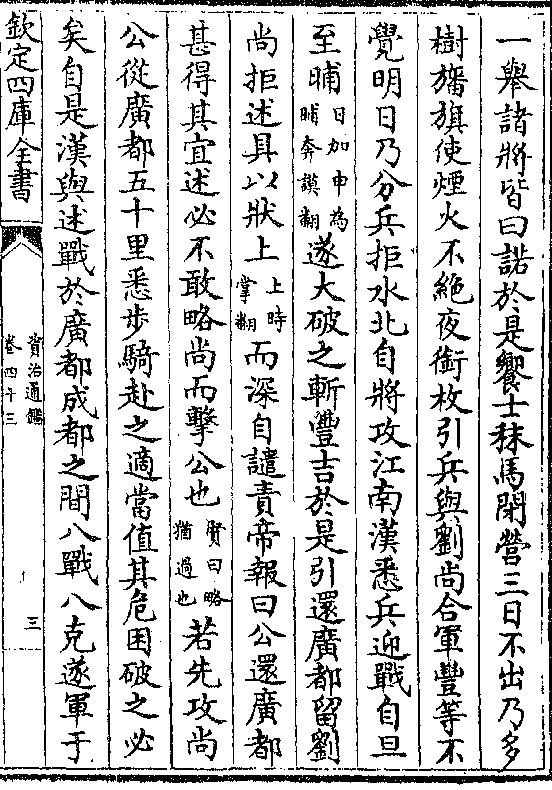 一舉諸將皆曰諾於是饗士秣馬閉營三日不出乃多
樹旛旗使煙火不絶夜銜枚引兵與劉尚合軍豐等不
覺明日乃分兵拒水北自將攻江南漢悉兵迎戰自旦
至晡日加申為晡奔謨翻遂大破之斬豐吉於是引還廣都留劉
尚拒述具以狀上上時掌翻而深自譴責帝報曰公還廣都
甚得其宜述必不敢略尚而擊公也賢曰略猶過也若先攻尚
公從廣都五十里悉步騎赴之適當值其危困破之必
矣自是漢與述戰於廣都成都之間八戰八克遂軍于
欽定四庫全書
資治通鑑
卷四十三
三